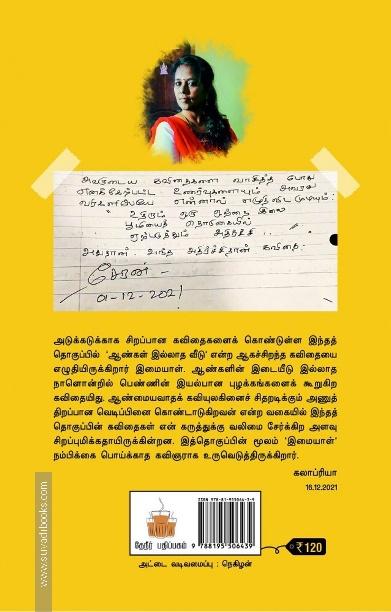 அவருடைய கவிதைகளை வாசித்த போது
எனக்கேற்பட்ட உணர்வுகளையும் அவரது
வரிகளிலேயே என்னால் எழுதிவிட முடியும்.
" உதிரும் ஒரு ஒற்றை இலை
ஏற்படுத்தும் அதிர்ச்சி...
அதுதான். அந்த அதிர்ச்சிதான் கவிதை.
சேரன்
01-12-2021
அடுக்கடுக்காக சிறப்பான கவிதைகளைக் கொண்டுள்ள இந்தத்
தொகுப்பில் 'ஆண்கள் இல்லாத வீடு' என்ற ஆகச்சிறந்த கவிதையை
எழுதியிருக்கிறார் இமையாள். ஆண்களின் இடையீடு இல்லாத
நாளொன்றில் பெண்ணின் இயல்பான புழக்கங்களைக் கூறுகிற
கவிதையிது. ஆண்மையவாதக் கவியுலகினைச் சிதறடிக்கும் அணுத்
திறப்பான வெடிப்பினை கொண்டாடுகிறவன் என்ற வகையில் இந்தத்
தொகுப்பின் கவிதைகள் என் கருத்துக்கு வலிமை சேர்க்கிற அளவு
சிறப்புமிக்கதாயிருக்கின்றன. இத்தொகுப்பின் மூலம் 'இமையாள்'
நம்பிக்கை பொய்க்காத கவிஞராக உருவெடுத்திருக்கிறார்.
கலாப்ரியா
16.12.2021
www.suvadibooks.com
தேநீர் பதிப்பகம்
ISBN 978-81-955064-3-9
9 788195 506439
₹ 120
அட்டை வடிவமைப்பு : நெகிழன்